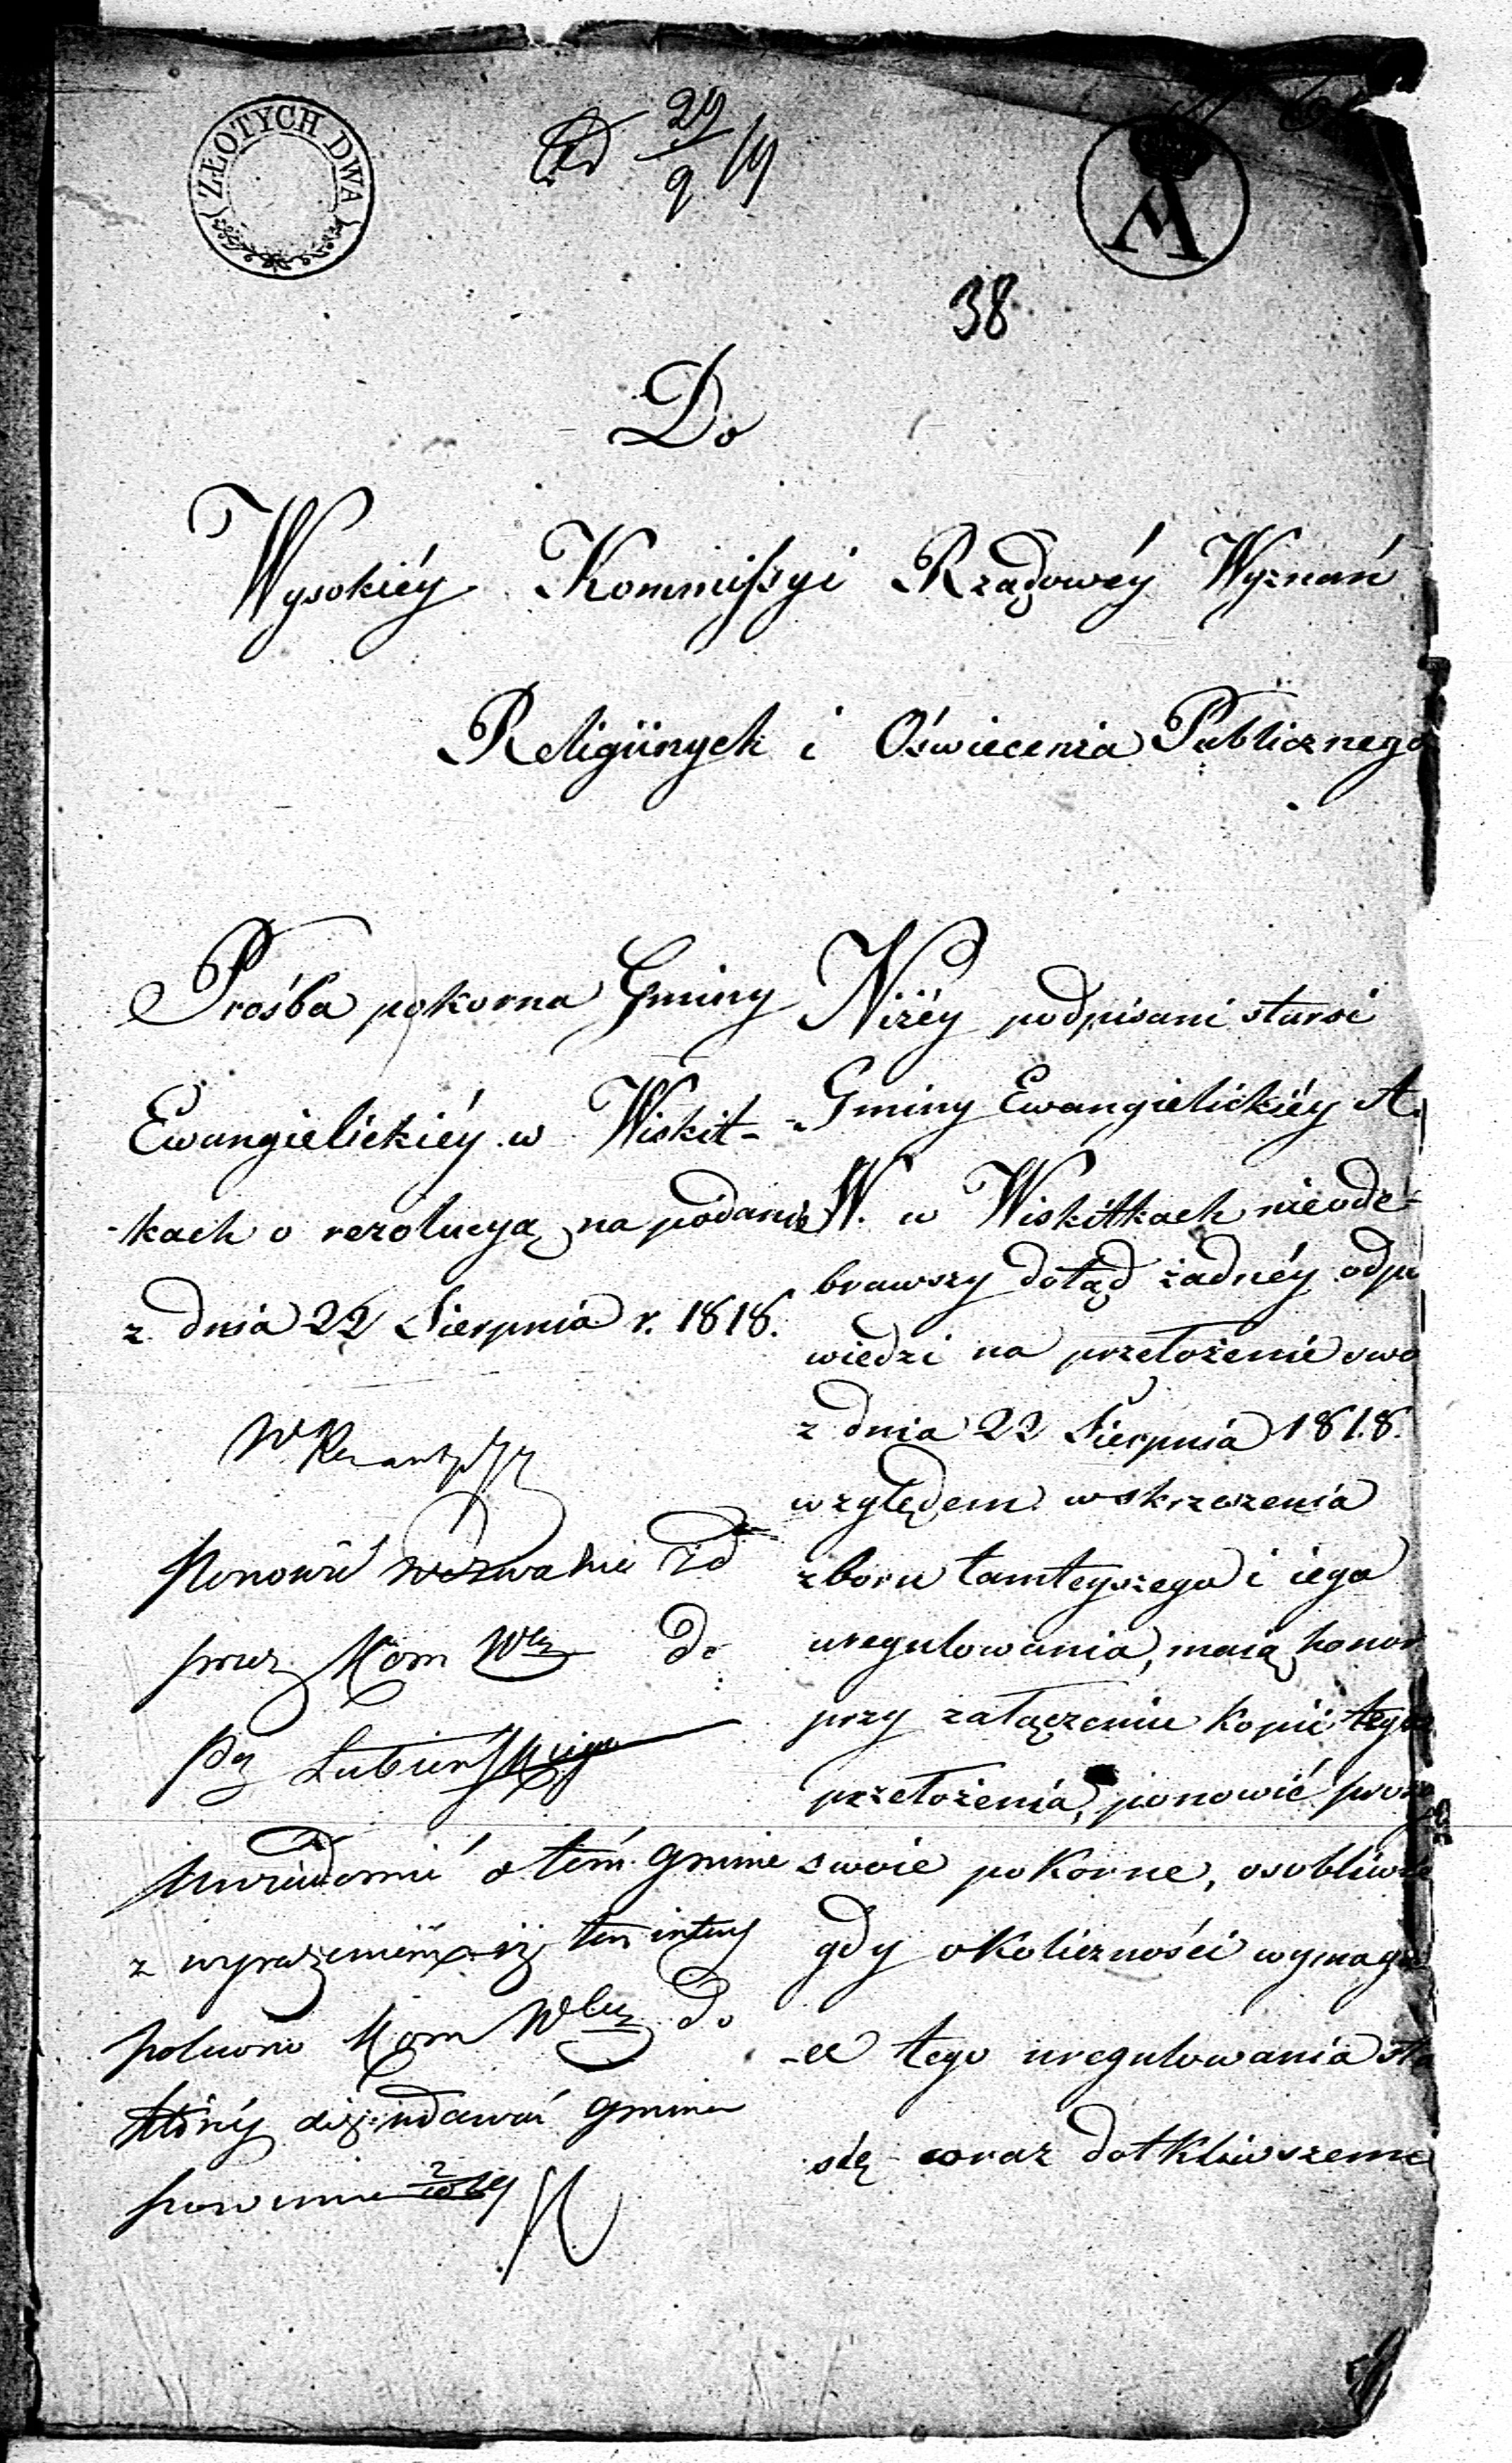 ZŁOTYCH DWA
29/9 19
38
Do
Wysokiéy Kommissyi Rządowéy Wyznań
Religiinych i Oświecenia Publicznego
Prośba pokorna Gminy
Ewangielickiéy w Wiskit-
-kach o rezolucyą na podanie
z dnia 22 Sierpnia r. 1818.
Ponowić wezwanie
przez Kom do
Lubieńskiego
uwiadomić o tém gminę
z wyrażeniem iż ten
Kom do
któréy udawać gmina
powinna 2/10 19
Niżéy podpisani starsi
Gminy Ewangielickiéy A.
W. w Wiskitkach nieode-
brawszy dotąd żadnéy odpo
wiedzi na przełożenie swo
z dnia 22 Sierpnia 1818.
względem wskrzeszenia
zboru tamteyszego i iego
uregulowania, maią honor
przy załączeniu kopii tegoż
przełożenia, ponowić proźb
swoie pokorne, osobliwie
gdy okoliczności wymaga
-ce tego uregulowania sta
się coraz dotkliwszemi